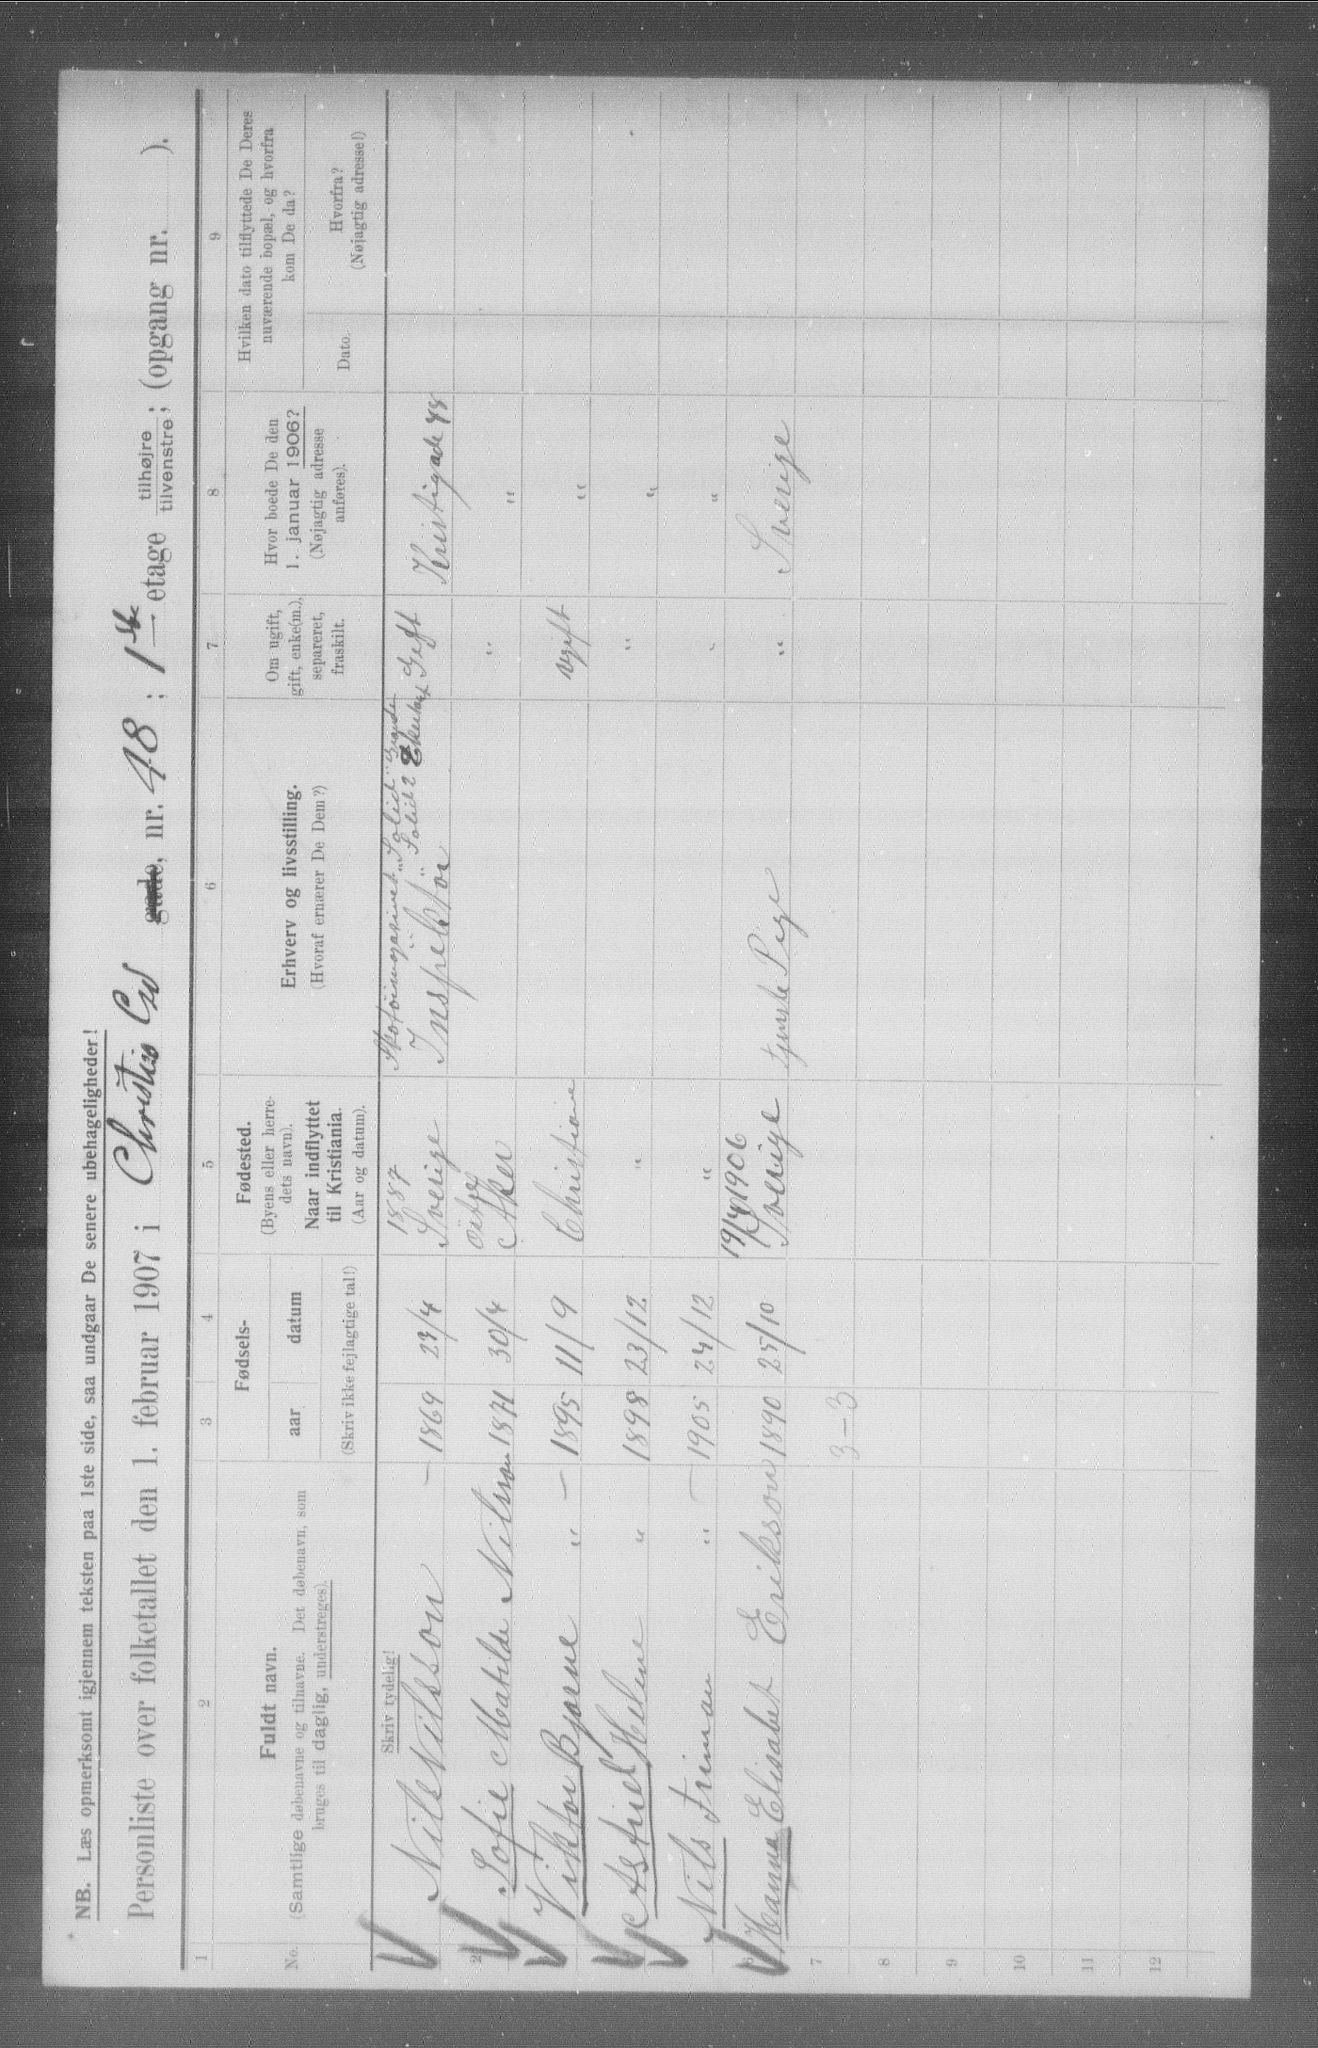 NB. Læs opmerksomt igjennem teksten paa 1ste side, saa undgaar De senere ubehageligheder!
Personliste over folketallet den 1. februar 1907 i Christian gade, nr. 48 ; 1ste etage tilhøjre tilvenstre; (opgang nr. ).
1 2 3 4 5 6 7 8 9
No.
Fuldt navn.
(Samtlige døbenavne og tilnavne. Det døbenavn, som
bruges til daglig, understreges).
Fødsels-
aar datum
(Skriv ikke fejlagtige tal!)
Fødested.
(Byens eller herre-
dets navn).
Naar indflyttet
til Kristiania.
(Aar og datum).
Erhverv og livsstilling.
(Hvoraf ernærer De Dem?)
Om ugift,
gift, enke(m.),
separeret,
fraskilt.
Hvor boede De den
1. januar 1906?
(Nøjagtig adresse
anføres).
Hvilken dato tilflyttede De Deres
nuværende bopæl, og hvorfra
kom De da?
Dato.
Hvorfra?
(Nøjagtig adresse!)
Skriv tydelig!
1887 Skotøimagasinet "Solid"
Nils Nilsson — 1869 23/4 Sverige Inspektør Gift Kristigade 48
2 Sofie Matilde Nilsson 1871 30/4 Aker " "
3 Viktor Bjarne " — 1895 11/9 Christiania ugift "
Helene " 1898 23/12 " " "
Nils " — 1905 24/12 " " "
19/4 1906
6 Hanna Elisabet Erikson 1890 25/10 Sverige tjeneste Pige " Sverige
7 3 – 3
8
9
10
11
12